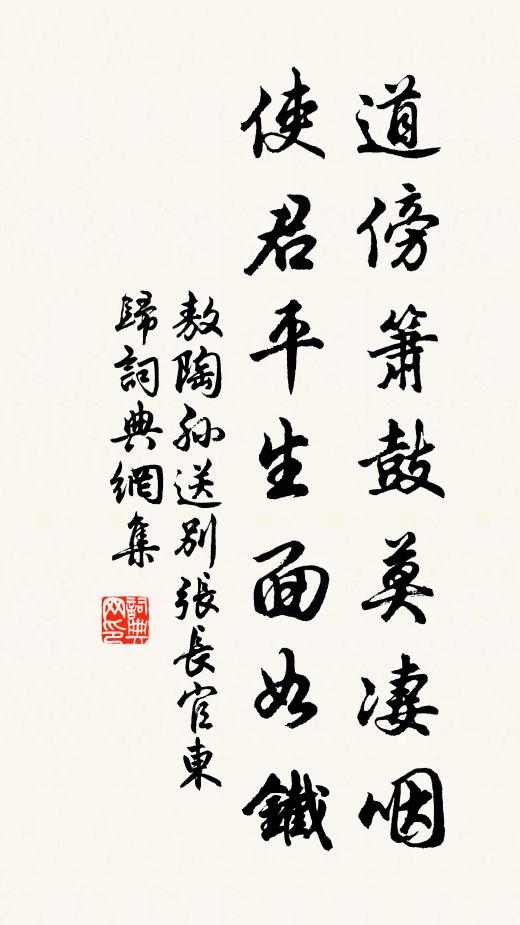 道傍簫鼓莫凄咽
使君平生面如鐵
敖陶孫送別張長官東
歸詞典網集
詞典
网印